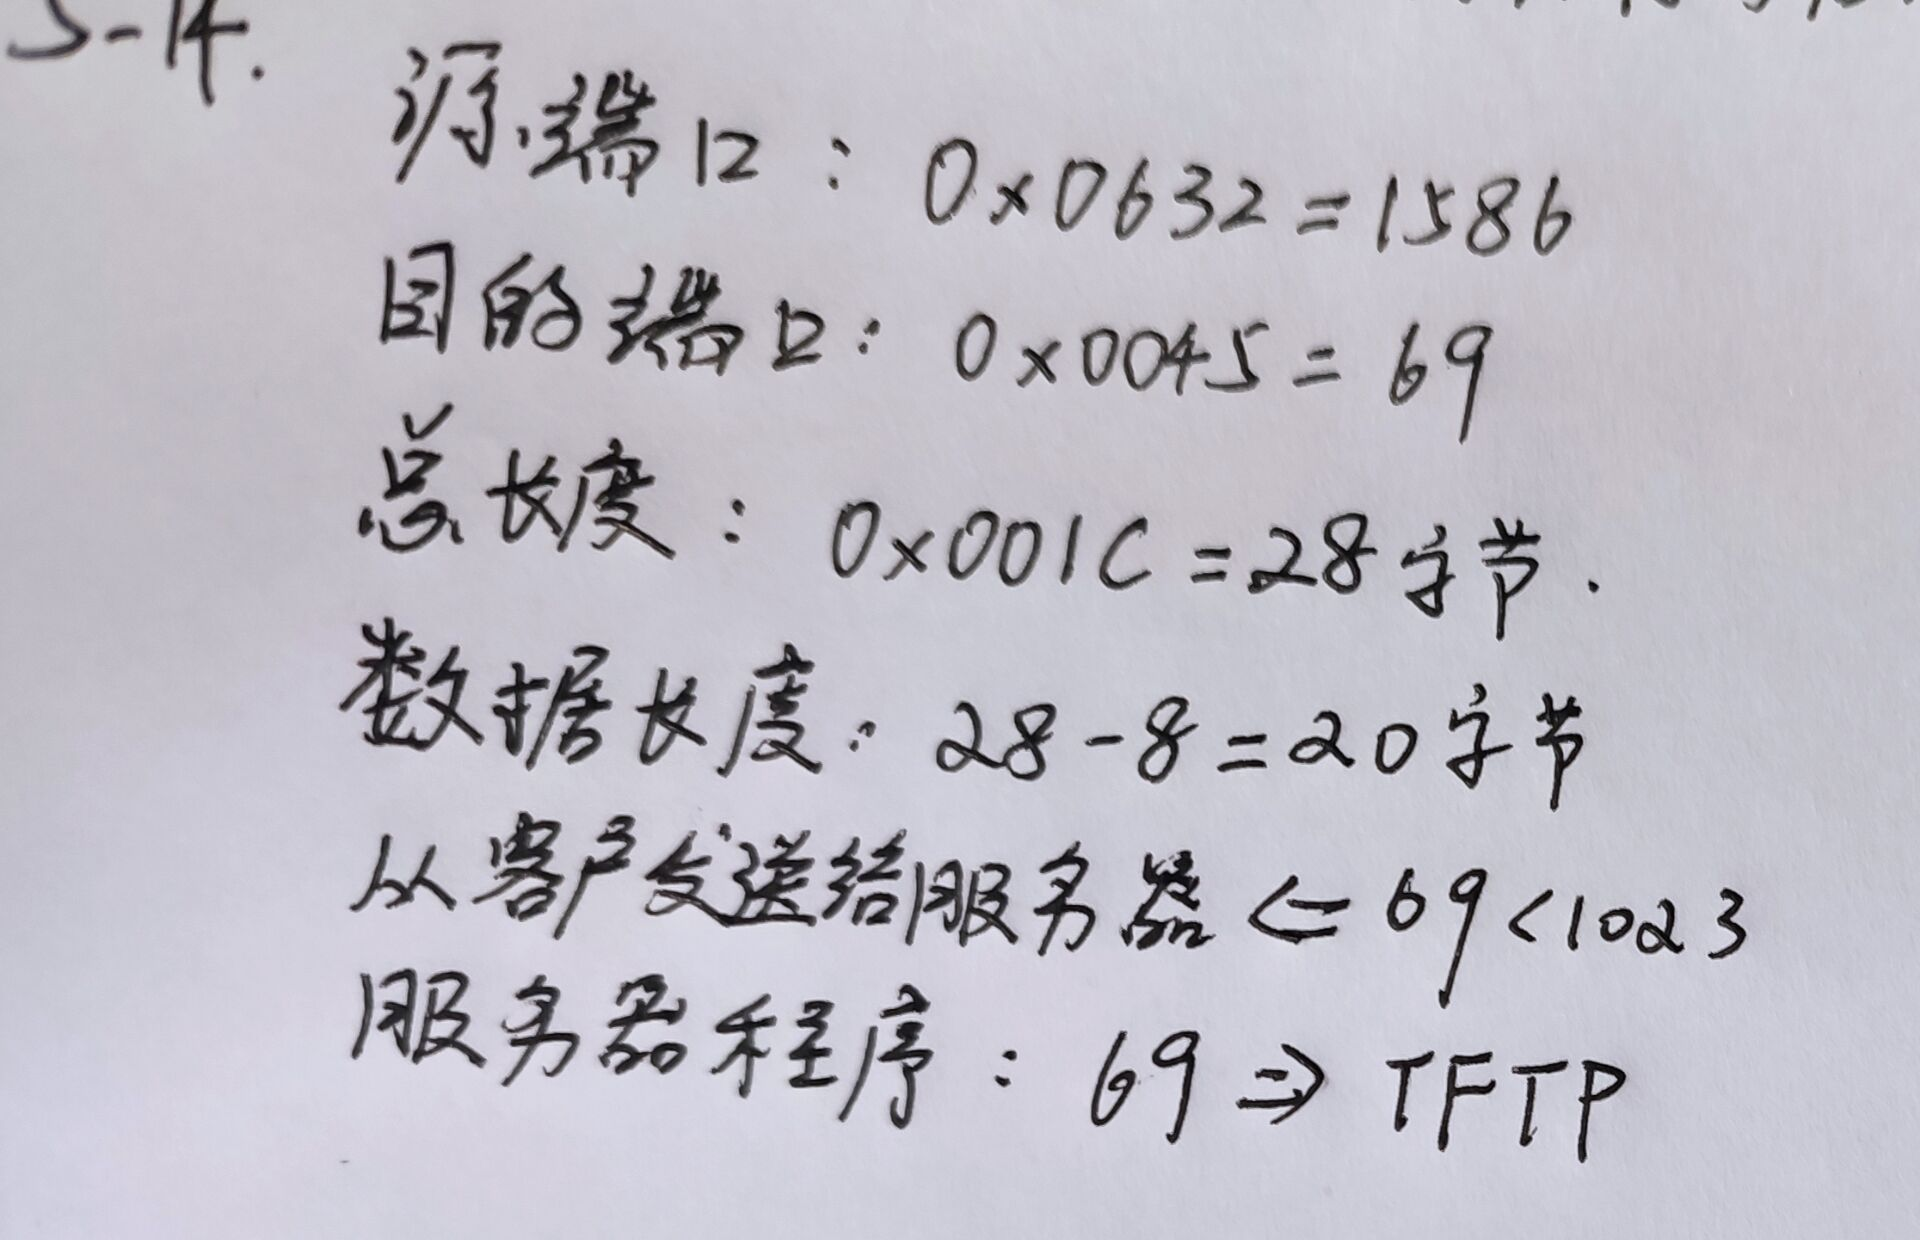 5-14.
源端口：0x0632=1586
目的端口：0x0045=69
总长度：0x001C=28字节.
数据长度：28-8=20字节
从客户发送给服务器⇐69<1023
服务器程序：69⇒TFTP